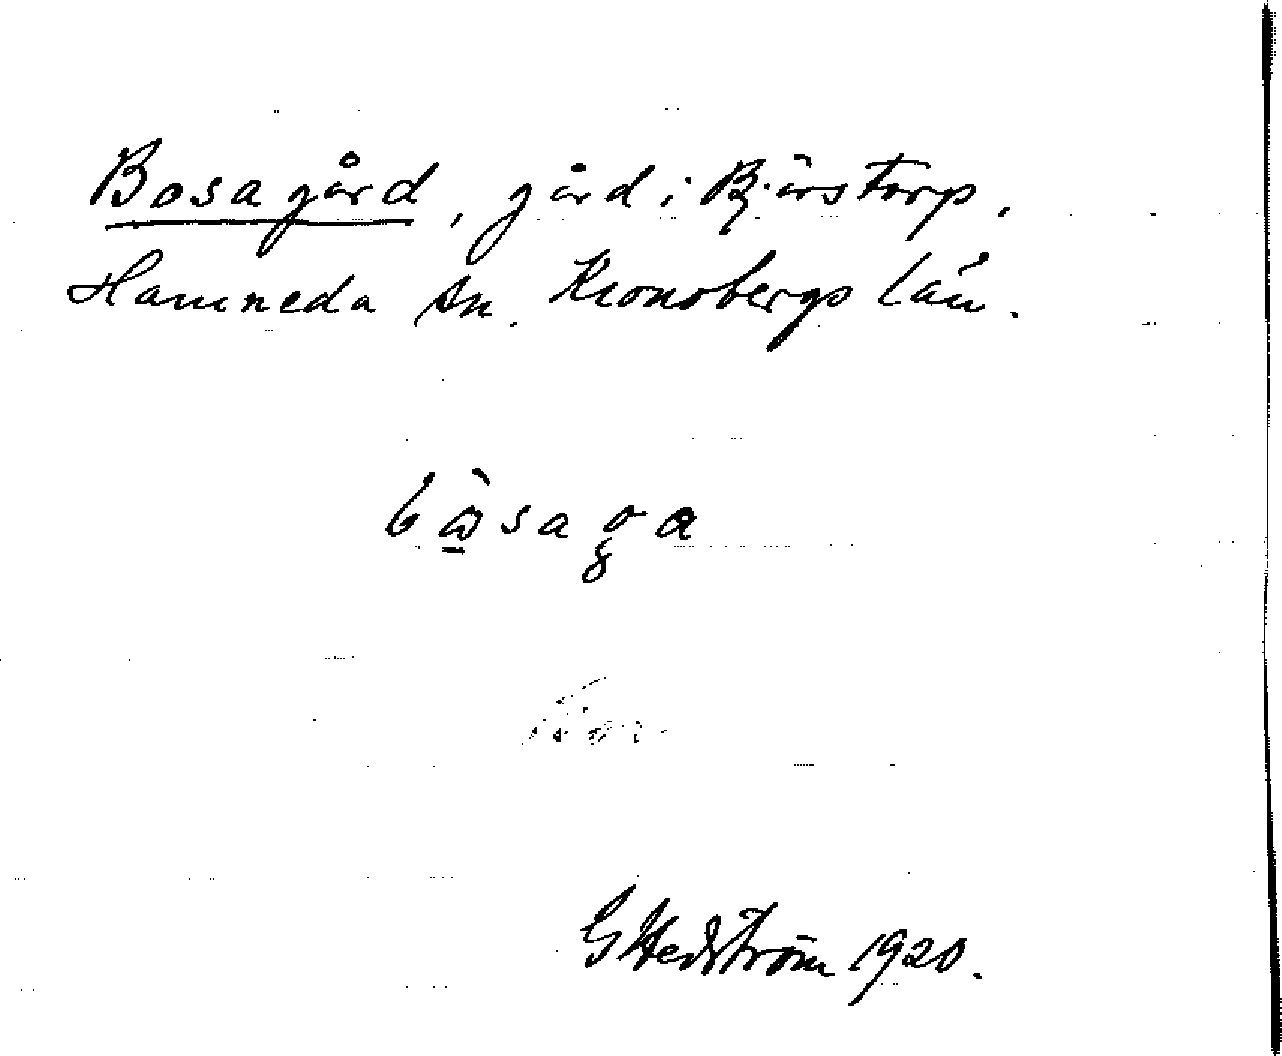 Bosagård, gård i Bjärstorp,
Hamneda sn. Kronobergs län.
bὼ̲saga
GHedström 1920.